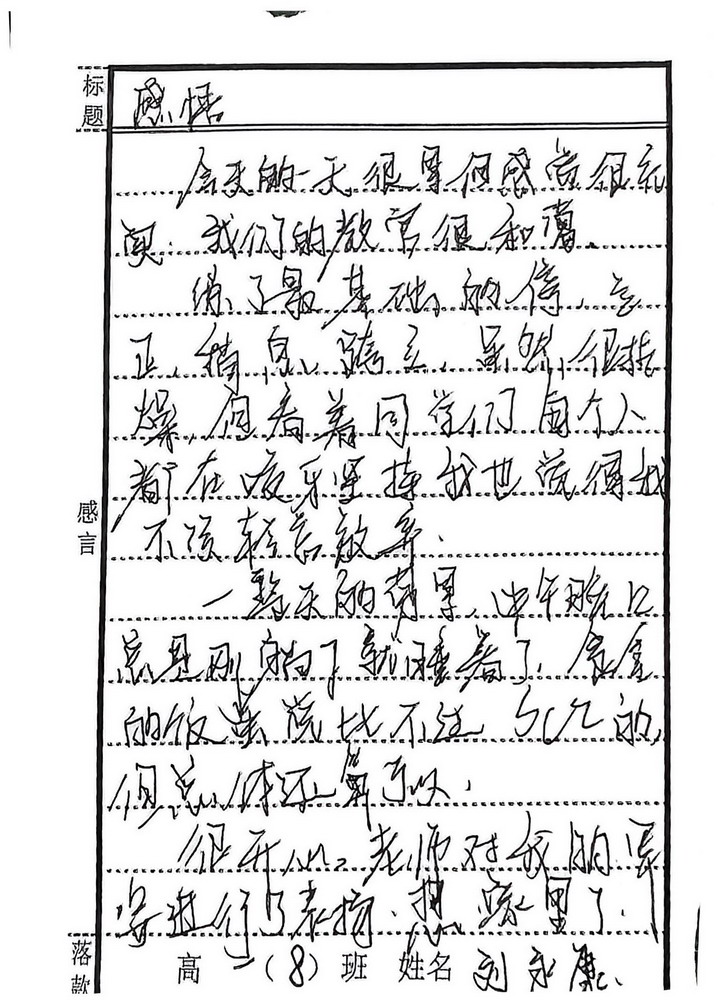 标题
感悟
今天的一天很累但感觉很充
实。我们的教官很和蔼。
练了最基础的停、立
正、稍息、跨立，虽然很枯
燥，但看着同学们每个人
都在咬牙坚持我也觉得我
不该轻言放弃。
一整天的劳累，中午
总是刚躺下就睡着了，食堂
的饭虽说比不过 的，
但总体还算可以。
很开心，老师对我的
进行了表扬，想家里了。
感言
落款
高一（8）班 姓名 刘永康